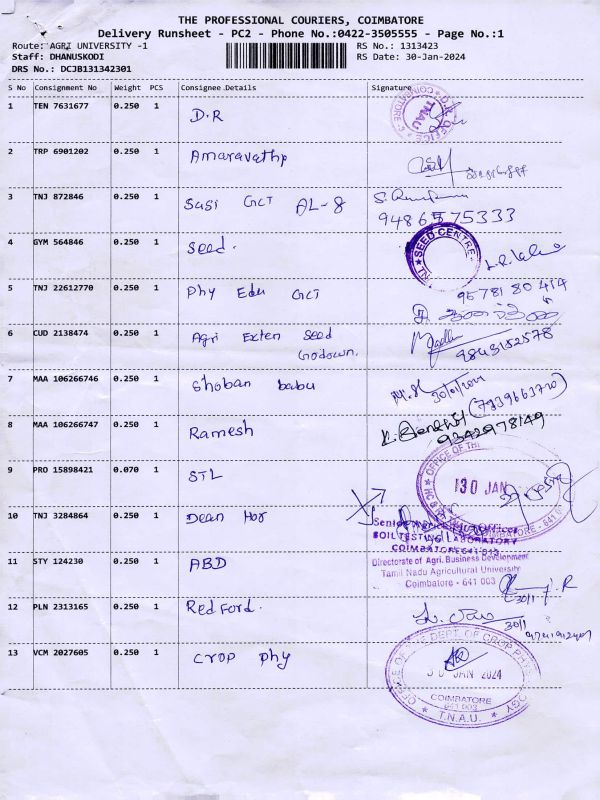 THE PROFESSIONAL COURIERS, COIMBATORE
Delivery Runsheet - PC2 - Phone No.:0422-3505555 - Page No.:1
Route: AGRI UNIVERSITY -1
RS No.: 1313423
Staff: DHANUSKODI
RS Date: 30-Jan-2024
DRS No.: DCJB131342301
S No Consignment No Weight PCS Consignee Details Signature
1 TEN 7631677 0.250 1 D.R
TNAU
2 TRP 6901202 0.250 1 Amaravathp
3 TNJ 872846 0.250 1 Susi GCT AL-8
9486575333
4 GYM 564846 0.250 1 Seed.
SEED CENTRE
5 TNJ 22612770 0.250 1 Phy Edu GCT
95781 80 414
6 CUD 2138474 0.250 1 Agri Exten Seed
Godown.
9843152578
7 MAA 106266746 0.250 1 Shoban babu
30/01/2024 (7339663720)
8 MAA 106266747 0.250 1 Ramesh
9342978149
9 PRO 15898421 0.070 1 STL
OFFICE OF THE
130 JAN
COIMBATORE - 641 0
10 TNJ 3284864 0.250 1 Dean Hor
SOIL TESTING LABORATORY
COIMBATORE 641 013
11 STY 124230 0.250 1 ABD
Directorate of Agri. Business Development
Tamil Nadu Agricultural University
Coimbatore - 641 003
30/1
12 PLN 2313165 0.250 1 RedFord.
30/1
13 VCM 2027605 0.250 1 Crop phy
DEPT. OF CROP
30 JAN 2024
COIMBATORE
641 003
T.N.A.U.